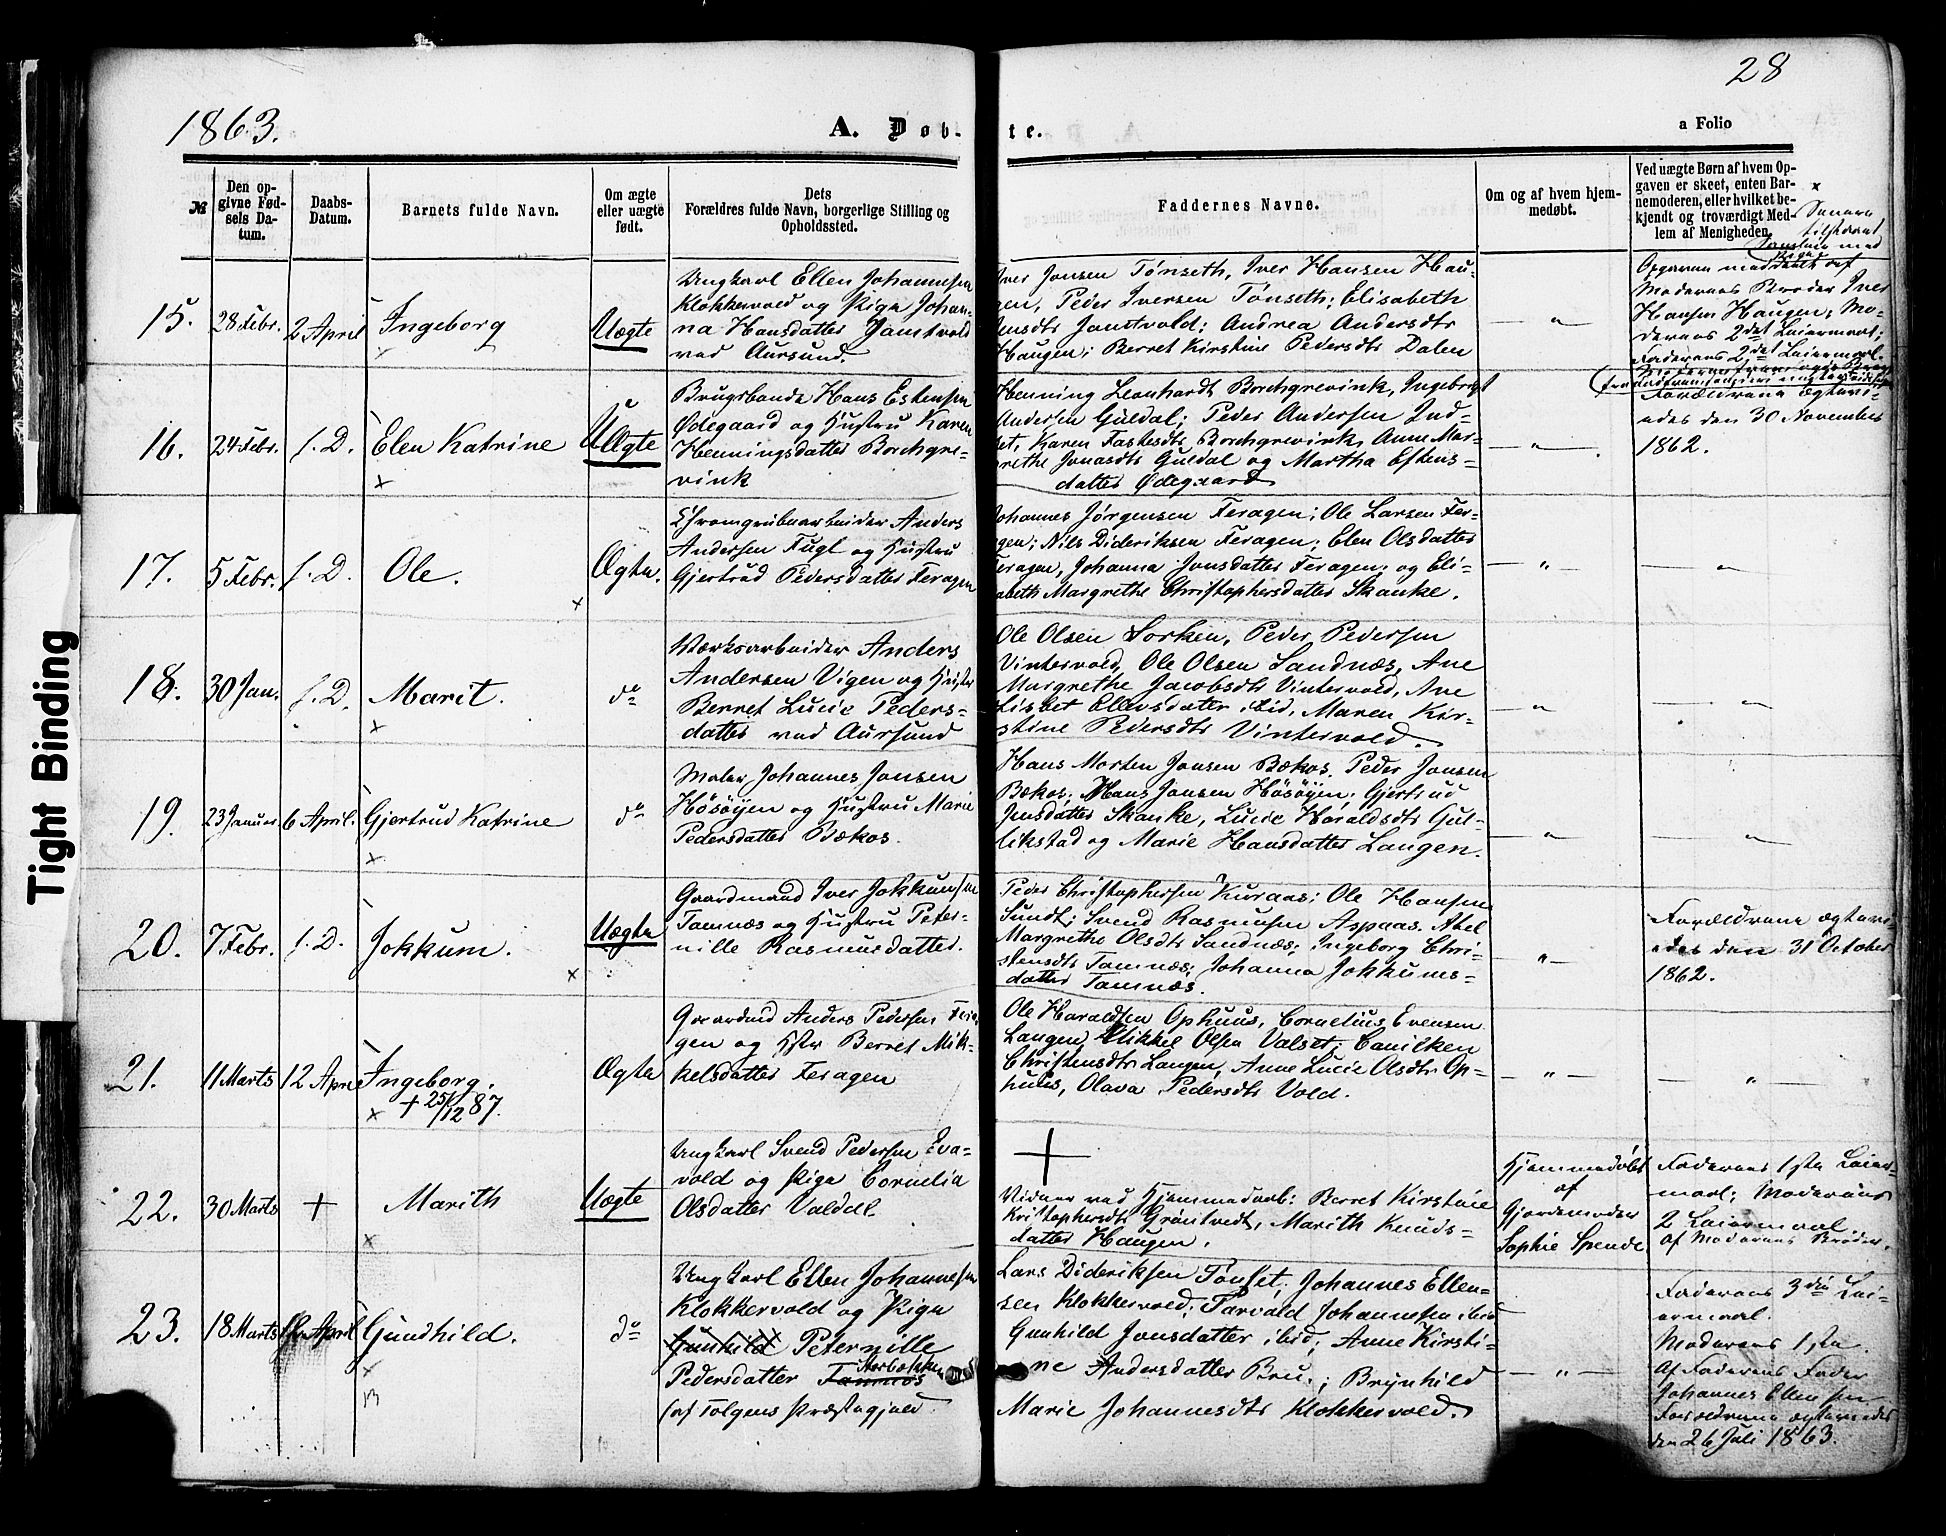 28
1863.
A. Døb-
te.
a Folio
№
Den op-
givne Fød-
sels Da-
tum.
Daabs-
Datum.
Barnets fulde Navn.
Om ægte
eller uægte
født.
Dets
Forældres fulde Navn, borgerlige Stilling og
Opholdssted.
Faddernes Navne.
Om og af hvem hjem-
medøbt.
Ved uægte Børn af hvem Op-
gaven er skeet, enten Bar-
nemoderen, eller hvilket be-
kjendt og troværdigt Med-
lem af Menigheden.
15.
28 Febr.
2 April
Ingeborg
Uægte
Ungkarl Ellen Johannesen
Klokkervold og Pige Johan-
na Hansdatter Jamtvold
ved Aursund.
Iver Jonsen Tønseth, Iver Hansen Hau-
gen, Peder Iversen Tønseth; Elisabeth
Jensdtr Jamtvold; Andrea Andersdtr
Haugen; Berret Kirstine Pedersdtr Dalen
"
Opgaven meddeelt af
Moderens Broder Iver
Hansen Haugen; Mo-
derens 2det Leiermaal;
Faderens 2det Leiermaal.
16.
24 Febr.
s. D.
Elen Katrine
Uægte
Brugsbonde Hans Estensen
Ødegaard og Hustru Karen
Henningsdatter Borchgre-
vink
Henning Leonhardt Borchgrevink, Ingebrigt
Andersen Guldal; Peder Andersen Ind-
set, Karen Fastesdtr Borchgrevink, Anne Mar-
grethe Jonasdtr Guldal og Martha Estens-
datter Ødegaard
"
Forældrene ægtevi-
edes den 30 November
1862.
17.
5 Febr.
s. D.
Ole.
Ægte.
Chromgrubearbeider Anders
Andersen Fugl og Hustru
Gjertrud Pedersdatter Feragen
Johannes Jørgensen Feragen; Ole Larsen Fer-
agen; Nils Dideriksen Feragen; Elen Olsdatter
Feragen, Johanna Jonsdatter Feragen; og Eli-
sabeth Margrethe Christophersdatter Skanke.
"
"
18.
30 Jan.
s. D.
Marit.
do
Værksarbeider Anders
Andersen Vigen og Hustru
Berret Lucie Peders-
datter ved Aursund
Ole Olsen Sorken, Peder Pedersen
Vintervold, Ole Olsen Sandnæs, Ane
Margrethe Jacobsdtr Vintervold, Ane
Lisbet Ellevsdatter Eid, Maren Kir-
stine Pedersdtr Vintervold.
"
"
19.
23 Januar
6 April.
Gjertrud Katrine
do
Maler Johannes Jonsen
Høsøyen og Hustru Marie
Pedersdatter Bækos.
Hans Morten Jonsen Bækos, Peder Jonsen
Bækos; Hans Jonsen Høsøyen; Gjertrud
Jensdatter Skanke, Lucie Haraldsdtr Gul-
likstad og Marie Hansdatter Langen.
"
"
20.
7 Febr.
s. D.
Jokkum.
Uægte
Gaardmand Iver Jokkumsen
Tamnæs og Hustru Peter-
nille Rasmusdatter.
Peder Christophersen Kuraas; Ole Hansen
Sundt; Svend Rasmusen Aspaas. Abel
Margrethe Olsdtr Sandnæs; Ingeborg Chri-
stensdtr Tamnæs; Johanna Jokkums-
datter Tamnæs.
"
Forældrene ægtevi-
edes den 31 October
1862.
21.
11 Marts
12 April
Ingeborg.
+ 25/12 87.
Ægte
Gaardmd Anders Pedersen Fera-
gen og Hstr Berret Mik-
kelsdatter Feragen
Ole Haraldsen Ophuus, Cornelius Evensen
Langen, Mikkel Olsen Valset; Canilken
Christensdtr Langen, Anne Lucie Olsdtr Op-
huus, Olava Pedersdtr Vold.
"
"
22.
30 Marts
+
Marith
Uægte
Ungkarl Svend Pedersen Eva-
vold og Pige Cornelia
Olsdatter Valdal.
+
Vidner ved Hjemmedaab: Berret Kirstine
Kristophersdtr Grøntvedt, Marith Knuds-
datter Haugen.
Hjemmedøbt
af
Gjordemoder
Sophie Spende.
Faderens 1ste Leier-
maal; Moderens
2 Leiermaal.
Af Moderens Broder.
23.
18 Marts
12 April
Gundhild.
do
Ungkarl Ellen Johannesen
Klokkervold og Pige
Gunhild Peternille
Pedersdatter Tamnæs
af Tolgens Præstegjeld.
Lars Dideriksen Tønset, Johannes Ellen-
sen Klokkervold; Tarvald Johannesen ibid
Gunhild Jonsdatter ibid; Anne Kirsti-
ne Andersdatter Bru.; Brynhild
Marie Johannesdtr Klokkervold.
"
Faderens 3die Lei-
ermaal.
Moderens 1ste.
Af Faderens Fader
Johannes Ellensen
Forældrene ægteviedes
den 26 Juli 1863.
Tight Binding